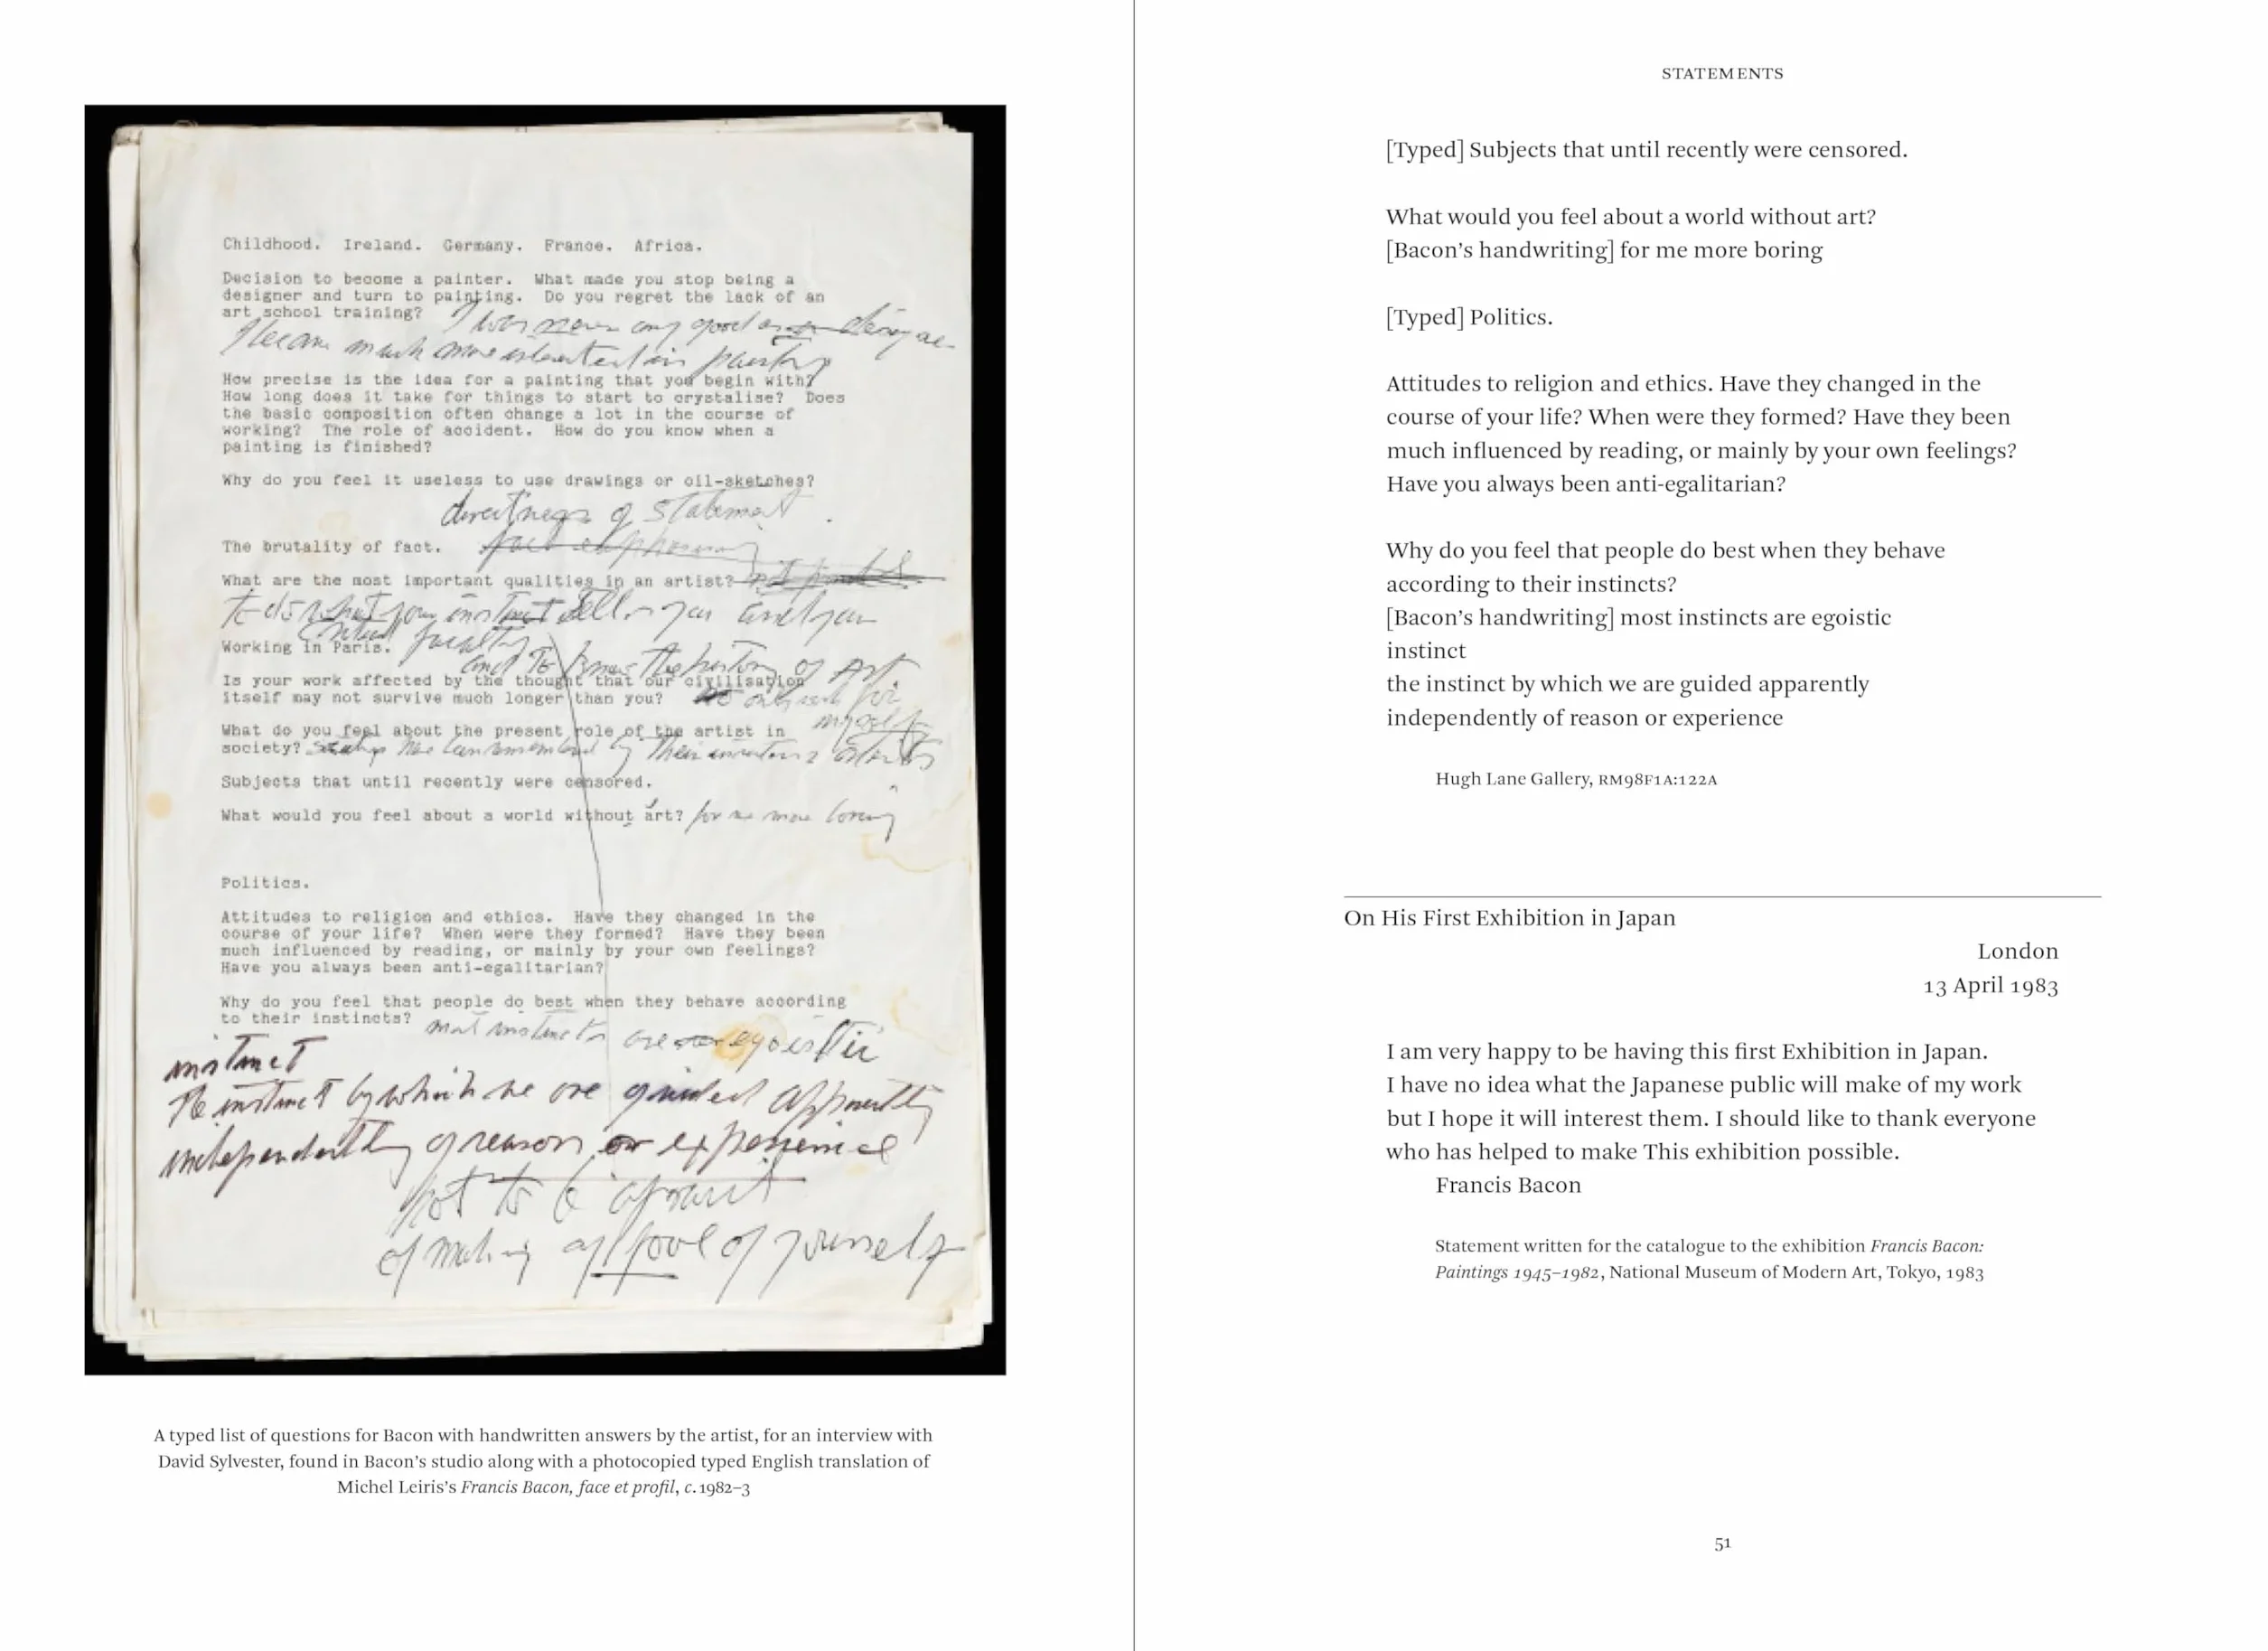 Childhood. Ireland. Germany. France. Africa.
Decision to become a painter. What made you stop being a
designer and turn to painting. Do you regret the lack of an
art school training? I was never any good as
I became much more interested in painting
How precise is the idea for a painting that you begin with?
How long does it take for things to start to crystalise? Does
the basic composition often change a lot in the course of
working? The role of accident. How do you know when a
painting is finished?
Why do you feel it useless to use drawings or oil-sketches?
directness of statement
The brutality of fact.
What are the most important qualities in an artist?
To do what your instinct tells you and your
critical faculty
Working in Paris.
and to know the history of Art
Is your work affected by the thought that our civilisation
itself may not survive much longer than you? only work for
myself
What do you feel about the present role of the artist in
society? by their artists
Subjects that until recently were censored.
What would you feel about a world without art? for me more boring
Politics.
Attitudes to religion and ethics. Have they changed in the
course of your life? When were they formed? Have they been
much influenced by reading, or mainly by your own feelings?
Have you always been anti-egalitarian?
Why do you feel that people do best when they behave according
to their instincts? most instincts are egoistic
instinct
the instinct by which we are guided apparently
independently of reason or experience
not to be afraid
of making a fool of yourself
A typed list of questions for Bacon with handwritten answers by the artist, for an interview with
David Sylvester, found in Bacon’s studio along with a photocopied typed English translation of
Michel Leiris’s Francis Bacon, face et profil, c. 1982–3
STATEMENTS
[Typed] Subjects that until recently were censored.
What would you feel about a world without art?
[Bacon’s handwriting] for me more boring
[Typed] Politics.
Attitudes to religion and ethics. Have they changed in the
course of your life? When were they formed? Have they been
much influenced by reading, or mainly by your own feelings?
Have you always been anti-egalitarian?
Why do you feel that people do best when they behave
according to their instincts?
[Bacon’s handwriting] most instincts are egoistic
instinct
the instinct by which we are guided apparently
independently of reason or experience
Hugh Lane Gallery, RM98F1A:122A
On His First Exhibition in Japan
London
13 April 1983
I am very happy to be having this first Exhibition in Japan.
I have no idea what the Japanese public will make of my work
but I hope it will interest them. I should like to thank everyone
who has helped to make This exhibition possible.
Francis Bacon
Statement written for the catalogue to the exhibition Francis Bacon:
Paintings 1945–1982, National Museum of Modern Art, Tokyo, 1983
51